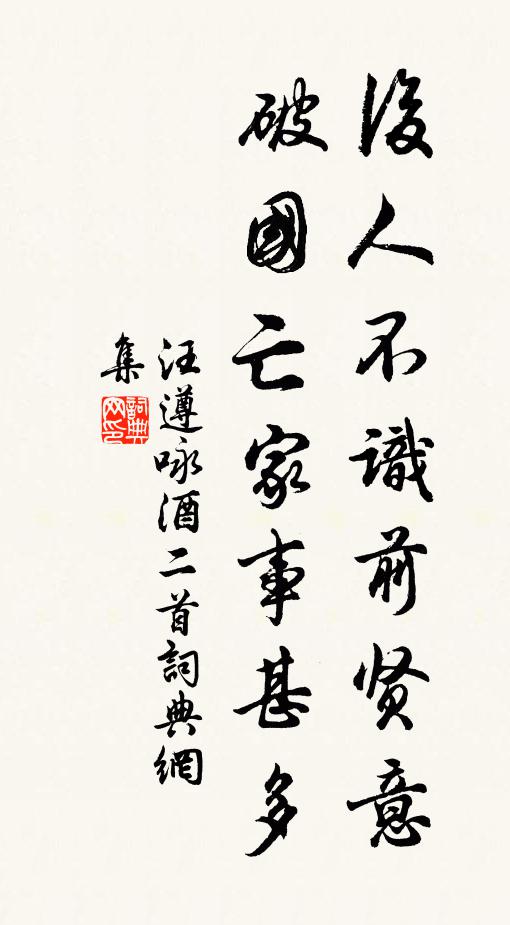 後人不識前贤意
破國亡家事甚多
汪遵咏酒二首詞典網
集
詞典
网印